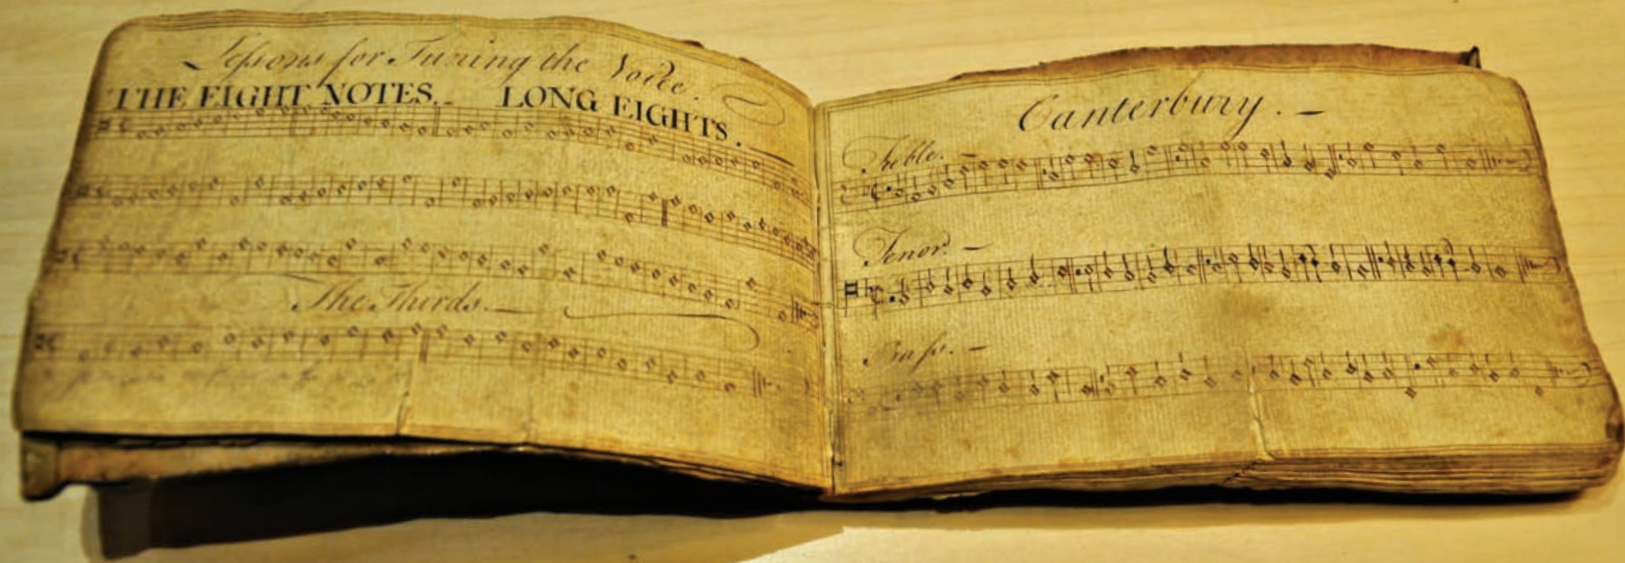 Leſsons for Tuning the Voice.
THE EIGHT NOTES. LONG EIGHTS.
The Thirds.
Canterbury.
Treble.
Tenor.
Baſs.